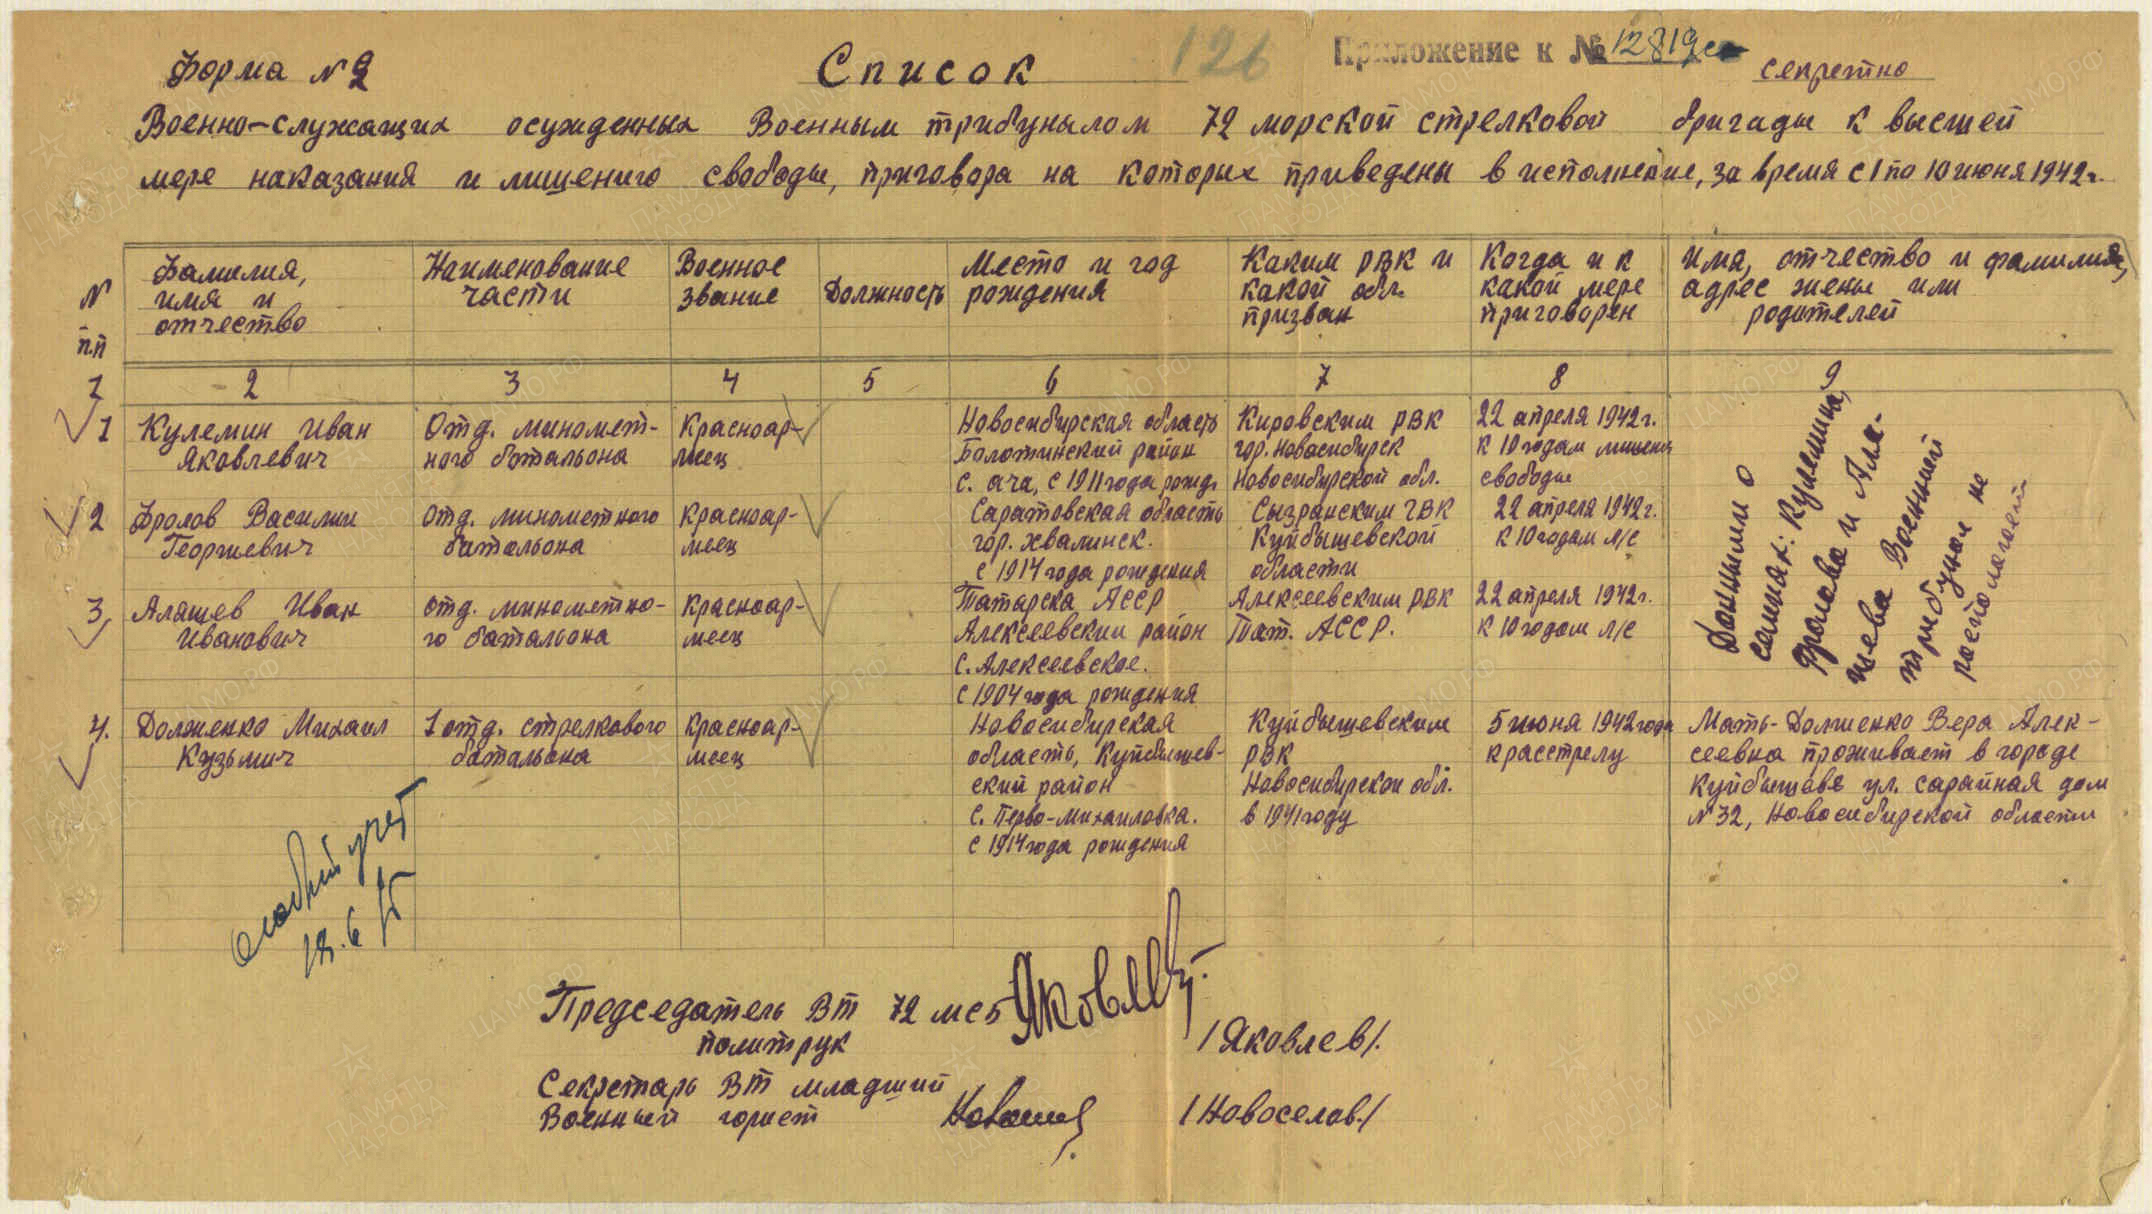 126
Приложение к № 12819
Форма № 2
Список
секретно
Военно-служащих осужденных Военным трибуналом 72 морской стрелковой бригады к высшей
мере наказания и лишениго свободы, приговора на которых приведены в исполнение, за время с 1 по 10 июня 1942 г.
N
п.п
Фамилия,
имя и
отчество
Наименование
части
Военное
звание
Должность
Место и год
рождения
Каким РВК и
какой обл.
призван
Когда и к
какой мере
приговорен
Имя, отчество и фамилия,
адрес жены или
родителей
1 2 3 4 5 6 7 8 9
1
Кулемин Иван
Яковлевич
Отд. миномет-
ного батальона
Красноар-
меец
Новосибирская область
Болотнинский район
с. Ача, с 1911 года рожд.
Кировским РВК
гор. Новосибирск
Новосибирской обл.
22 апреля 1942 г.
к 10 годам лишения
свободы
2
Фролов Василий
Георгиевич
Отд. минометного
батальона
Красноар-
меец
Саратовская область
гор. Хвалинск.
с 1914 года рождения
Сызранским ГВК
Куйбышевской
области
22 апреля 1942 г.
к 10 годам л/с
3,
Алашев Иван
Иванович
Отд. минометно-
го батальона
Красноар-
меец
Татарска АССР
Алексеевский район
с. Алексеевское.
с 1904 года рождения
Алексеевским РВК
Тат. АССР.
22 апреля 1942 г.
к 10 годам л/с
Данными о
семьях: Кулемина,
Фролова и Ала-
шева Военный
трибунал не
располагает
4.
Долженко Михаил
Кузьмич
1 отд. стрелкового
батальона
Красноар-
меец
Новосибирская
область, Куйбышев-
ский район
с. Перво-Михаиловка.
с 1914 года рождения
Куйбышевским
РВК
Новосибирской обл.
в 1941 году
5 июня 1942 года
к расстрелу
Мать - Долженко Вера Алек-
сеевна проживает в городе
Куйбышеве ул. Сарайная дом
N 32, Новосибирской области
особый учет
18.6
Председатель ВТ 72 мсб
политрук
Яковлев
/Яковлев/.
Секретарь ВТ младший
Военный юрист
/Новоселов./
ПАМЯТЬ НАРОДА
ЦАМО.РФ